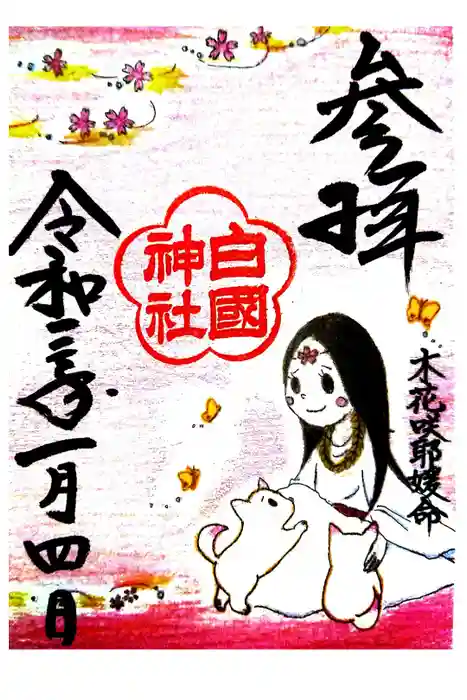 参拝
白國
神社
木花咲耶媛命
令和三年一月四日